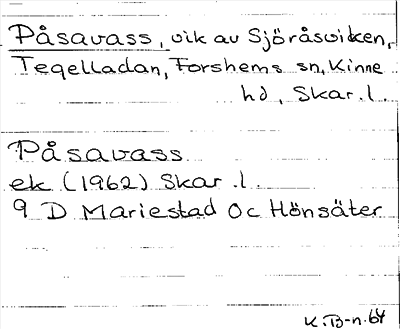 Påsavass, vik av Sjöråsviken,
Tegelladan, Forshems sn, Kinne
hd, Skar.l.
Påsavass
ek (1962) Skar.l.
9 D Mariestad Oc Hönsäter
K.B-n.64